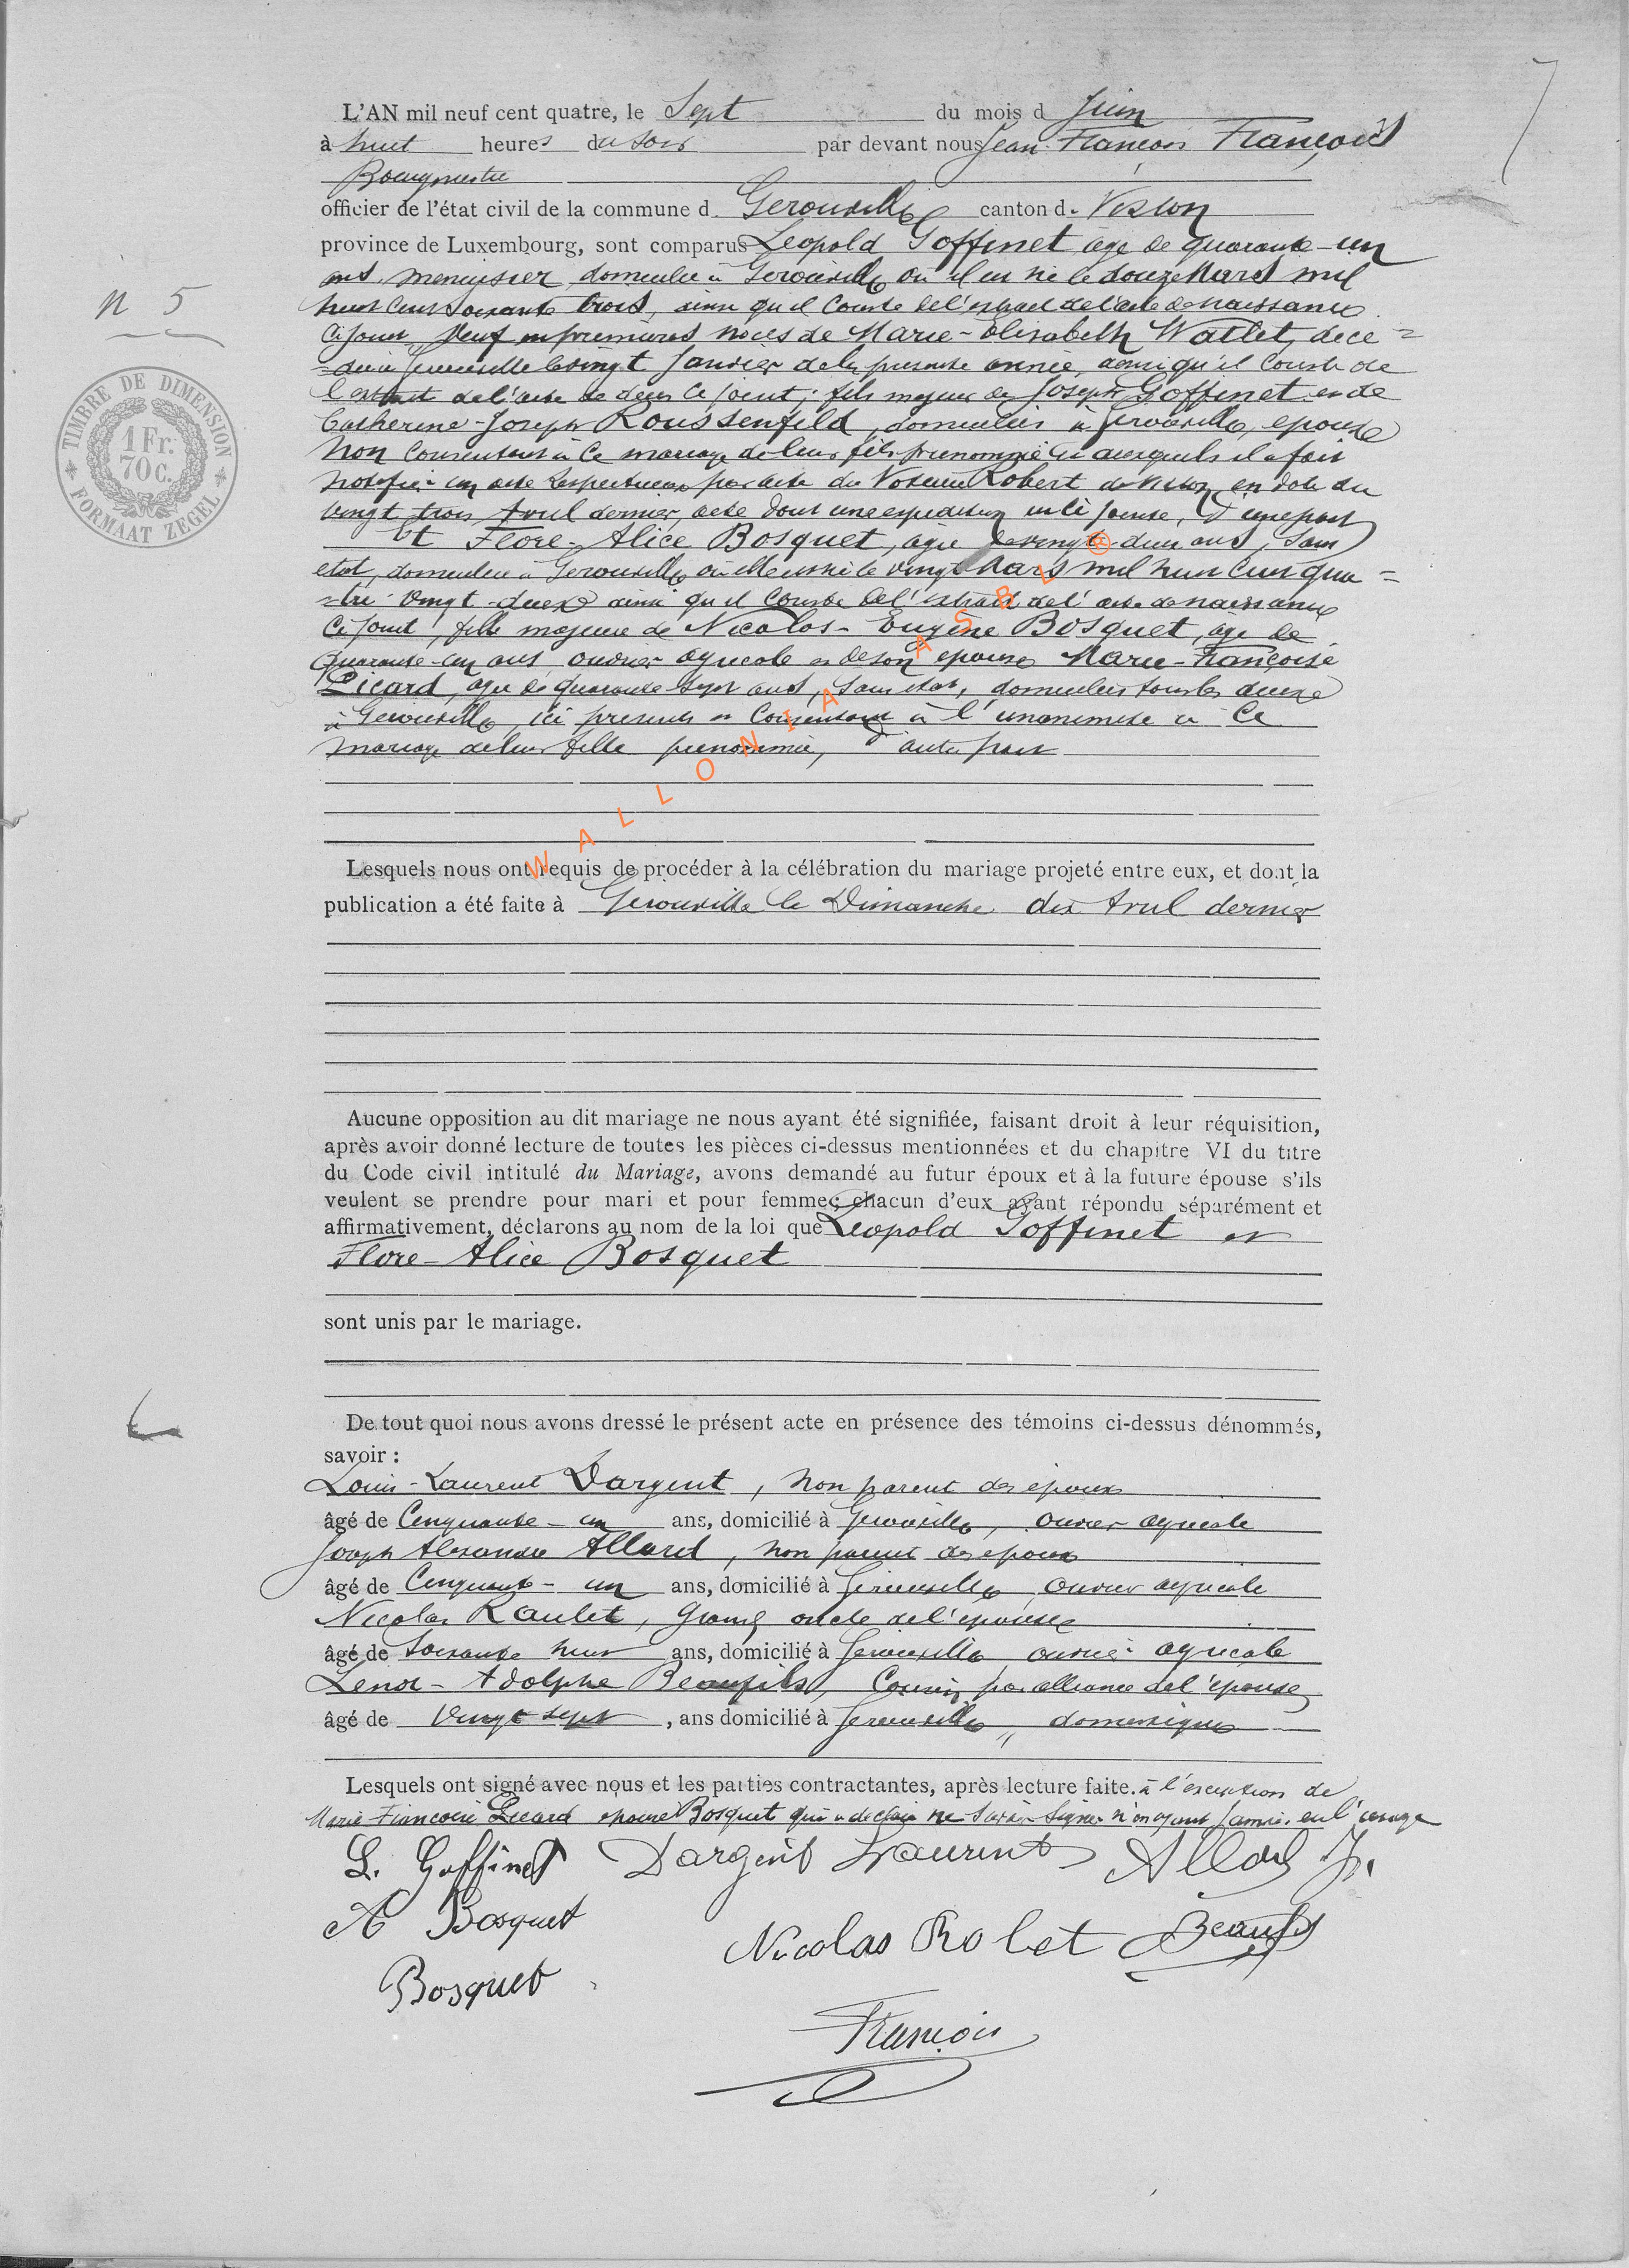 7
L'AN mil neuf cent quatre, le Sept du mois d Juin
à huit heures du soir par devant nous Jean François François
Bourgmestre
officier de l'état civil de la commune d. Gerouville canton d. Virton
province de Luxembourg, sont comparus Léopold Goffinet âgé de quarante-un
ans, menuisier, domicilié à Gerouville où il est né le douze Mars mil
n 5
huit cent soixante trois, ainsi qu'il conste de l'extrait de l'acte de naissance
ci joint, veuf en premières noces de Marie-Elisabeth Watlet, décé=
=dée à Gerouville le vingt Janvier de la présente année, ainsi qu'il conste de
l'extrait de l'acte de décès ci joint; fils majeur de Joseph Goffinet et de
Catherine-Joseph Roussenfeld, domiciliés à Gerouville, époux
TIMBRE DE DIMENSION
1 Fr.
70 C.
FORMAAT ZEGEL
non consentant à ce mariage de leur fils prénommé et auxquels il a fait
notifier un acte respectueux par acte du Notaire Robert de Virton en date du
vingt trois Avril dernier, acte dont une expédition est ci jointe, d'une part
Et Flore-Alice Bosquet, âgée de vingt deux ans, sans
état, domiciliée à Gerouville où elle est née le vingt Mars mil huit cent qua=
=tre vingt-deux ainsi qu'il conste de l'extrait de l'acte de naissance
ci joint, fille majeure de Nicolas-Eugène Bosquet, âgé de
quarante-un ans ouvrier agricole et de son épouse Marie-Françoise
Picard, âgée de quarante-sept ans, sans état, domiciliés tous les deux
à Gerouville, ici présents et consentant à l'unanimité à ce
mariage de leur fille prénommée, d'autre part
WALLONIA ASBL ®
Lesquels nous ont requis de procéder à la célébration du mariage projeté entre eux, et dont la
publication a été faite à Gerouville le Dimanche dix Avril dernier
Aucune opposition au dit mariage ne nous ayant été signifiée, faisant droit à leur réquisition,
après avoir donné lecture de toutes les pièces ci-dessus mentionnées et du chapitre VI du titre
du Code civil intitulé du Mariage, avons demandé au futur époux et à la future épouse s'ils
veulent se prendre pour mari et pour femme; chacun d'eux ayant répondu séparément et
affirmativement, déclarons au nom de la loi que Léopold Goffinet et
Flore-Alice Bosquet
sont unis par le mariage.
De tout quoi nous avons dressé le présent acte en présence des témoins ci-dessus dénommés,
savoir :
Louis-Laurent Dargent, non parent des époux
âgé de Cinquante-un ans, domicilié à Gerouville, ouvrier agricole
Joseph Alexandre Allard, non parent des époux
âgé de Cinquante-un ans, domicilié à Gerouville, ouvrier agricole
Nicolas Raulet, grand oncle de l'épouse
âgé de Soixante huit ans, domicilié à Gerouville ouvrier agricole
Adolphe Beaufils, Cousin par alliance de l'épouse
âgé de Vingt sept, ans domicilié à Gerouville, domestique
Lesquels ont signé avec nous et les parties contractantes, après lecture faite. à l'exception de
Marie Françoise Picard épouse Bosquet qui a déclaré ne savoir signer n'en ayant jamais eu l'usage
L. Goffinet Dargent Laurent Allard J.
A Bosquet
Nicolas Rolet Beaufils
Bosquet
François